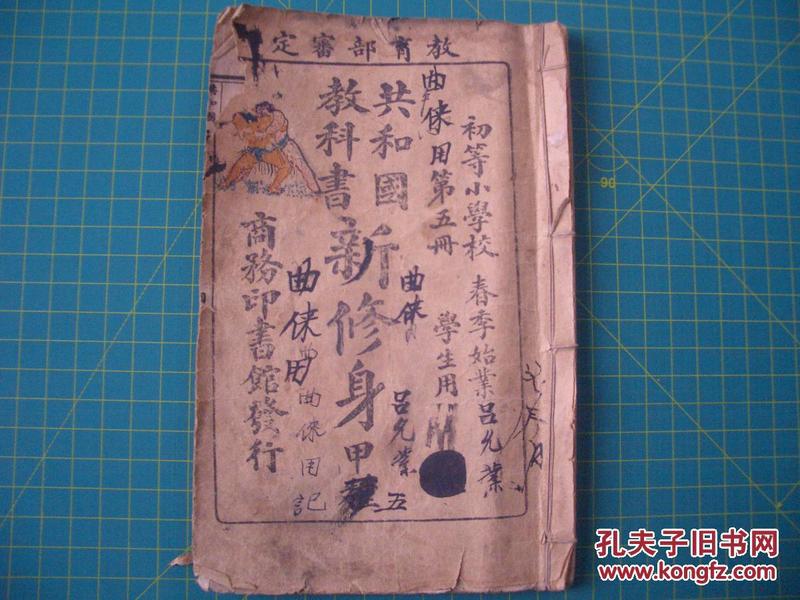 教育部審定
初等小學校 春季始業
呂允業
曲俫用第五冊
學生用
共和國
教科書
新修身
甲種
五
曲俫
呂允業
曲俫用
曲俫用記
商務印書館發行
90
孔夫子旧书网
www.kongfz.com